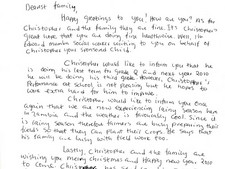 Dear family,
Happy greetings to you! How are you? As for
Christopher and the family they are fine. It's Christopher's
great hope that you are doing fine healthwise. Am,
Edward Mumba social worker writing to you on behalf of
Christopher your sponsored child.
Christopher would like to inform you that he
is doing his last term in grade 2 and next year 2010
he will be doing his grade. However, Christopher's
Performance at school is not pleasing but he hopes to
work extra hard for him to improve.
Christopher, would like to inform you once
again that we are now experiencing rainy season here
in Zambia and the weather is favourably cool. Since it
is rainy season therefore farmers are busy preparing their
fields so that they can plant their crops. He says that
family are busy with field work too.
Lastly Christopher and the family are
wishing you merry christmas and Happy new year 2010